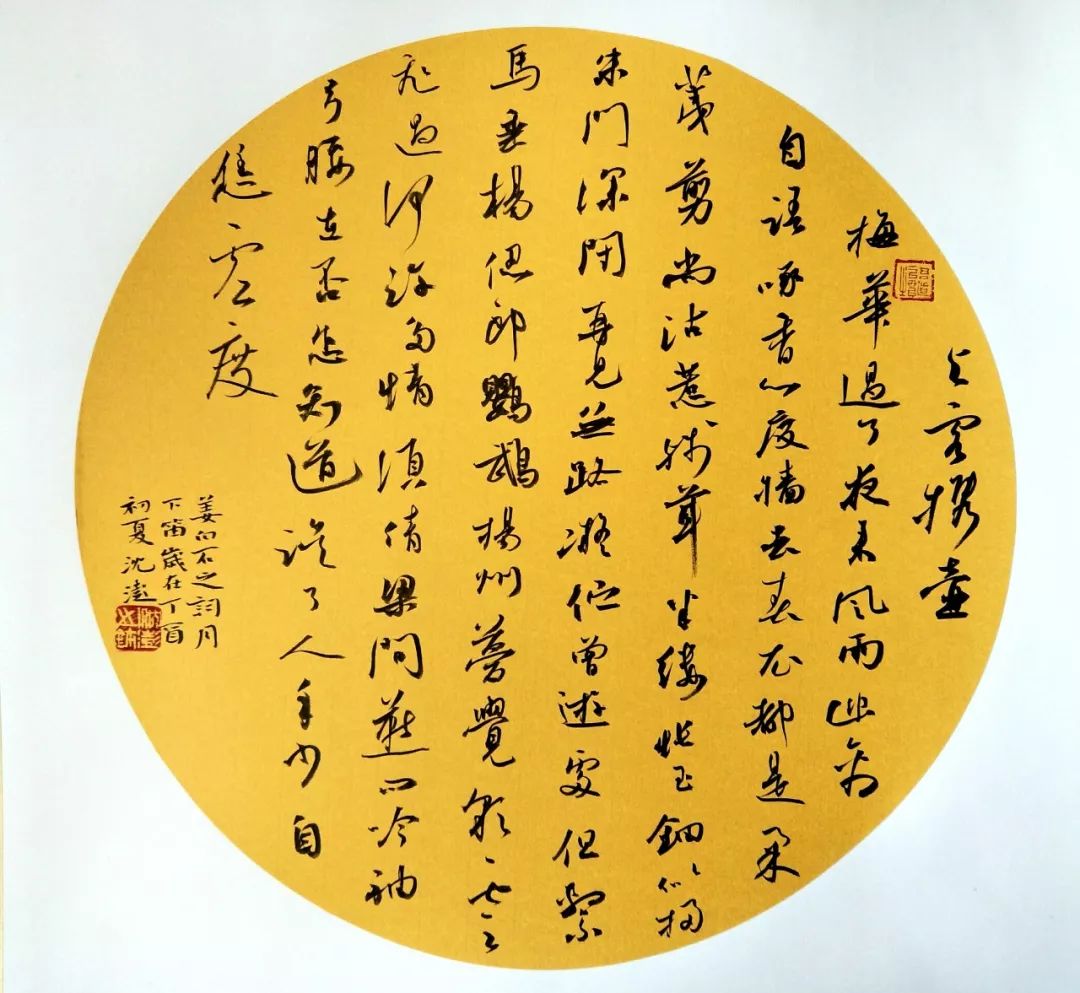 与客携壺
梅華過了夜来風雨幽禽
自語啄香心度墻去春衣都是柔
荑剪尚沾惹殘茸半縷悵玉鈿似掃
朱門深閉再見無路凝佇曾遊處但繫
馬垂楊認郎鸚鵡揚州夢覺彩雲
飛過何許多情須倩梁間燕問吟袖
弓腰在否怎知道誤了人年少自
恁虛度
姜白石之詞月
下笛歲在丁酉
初夏沈澎